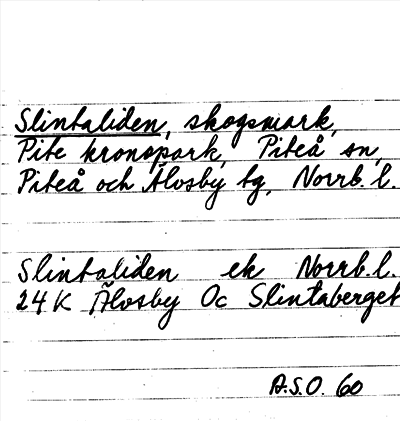 Slintaliden, skogsmark,
Pite kronopark, Piteå sn,
Piteå och Älvsby tg, Norrb. l.
Slintaliden ek Norrb. l.
24 K Älvsby Oc Slintaberget
A.S.O. 60